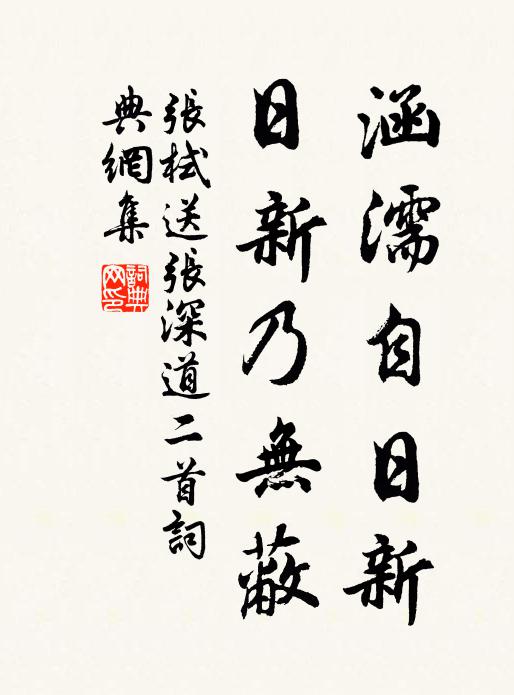 涵濡自日新
日新乃無蔽
張栻送張深道二首詞
典網集
詞典
网印